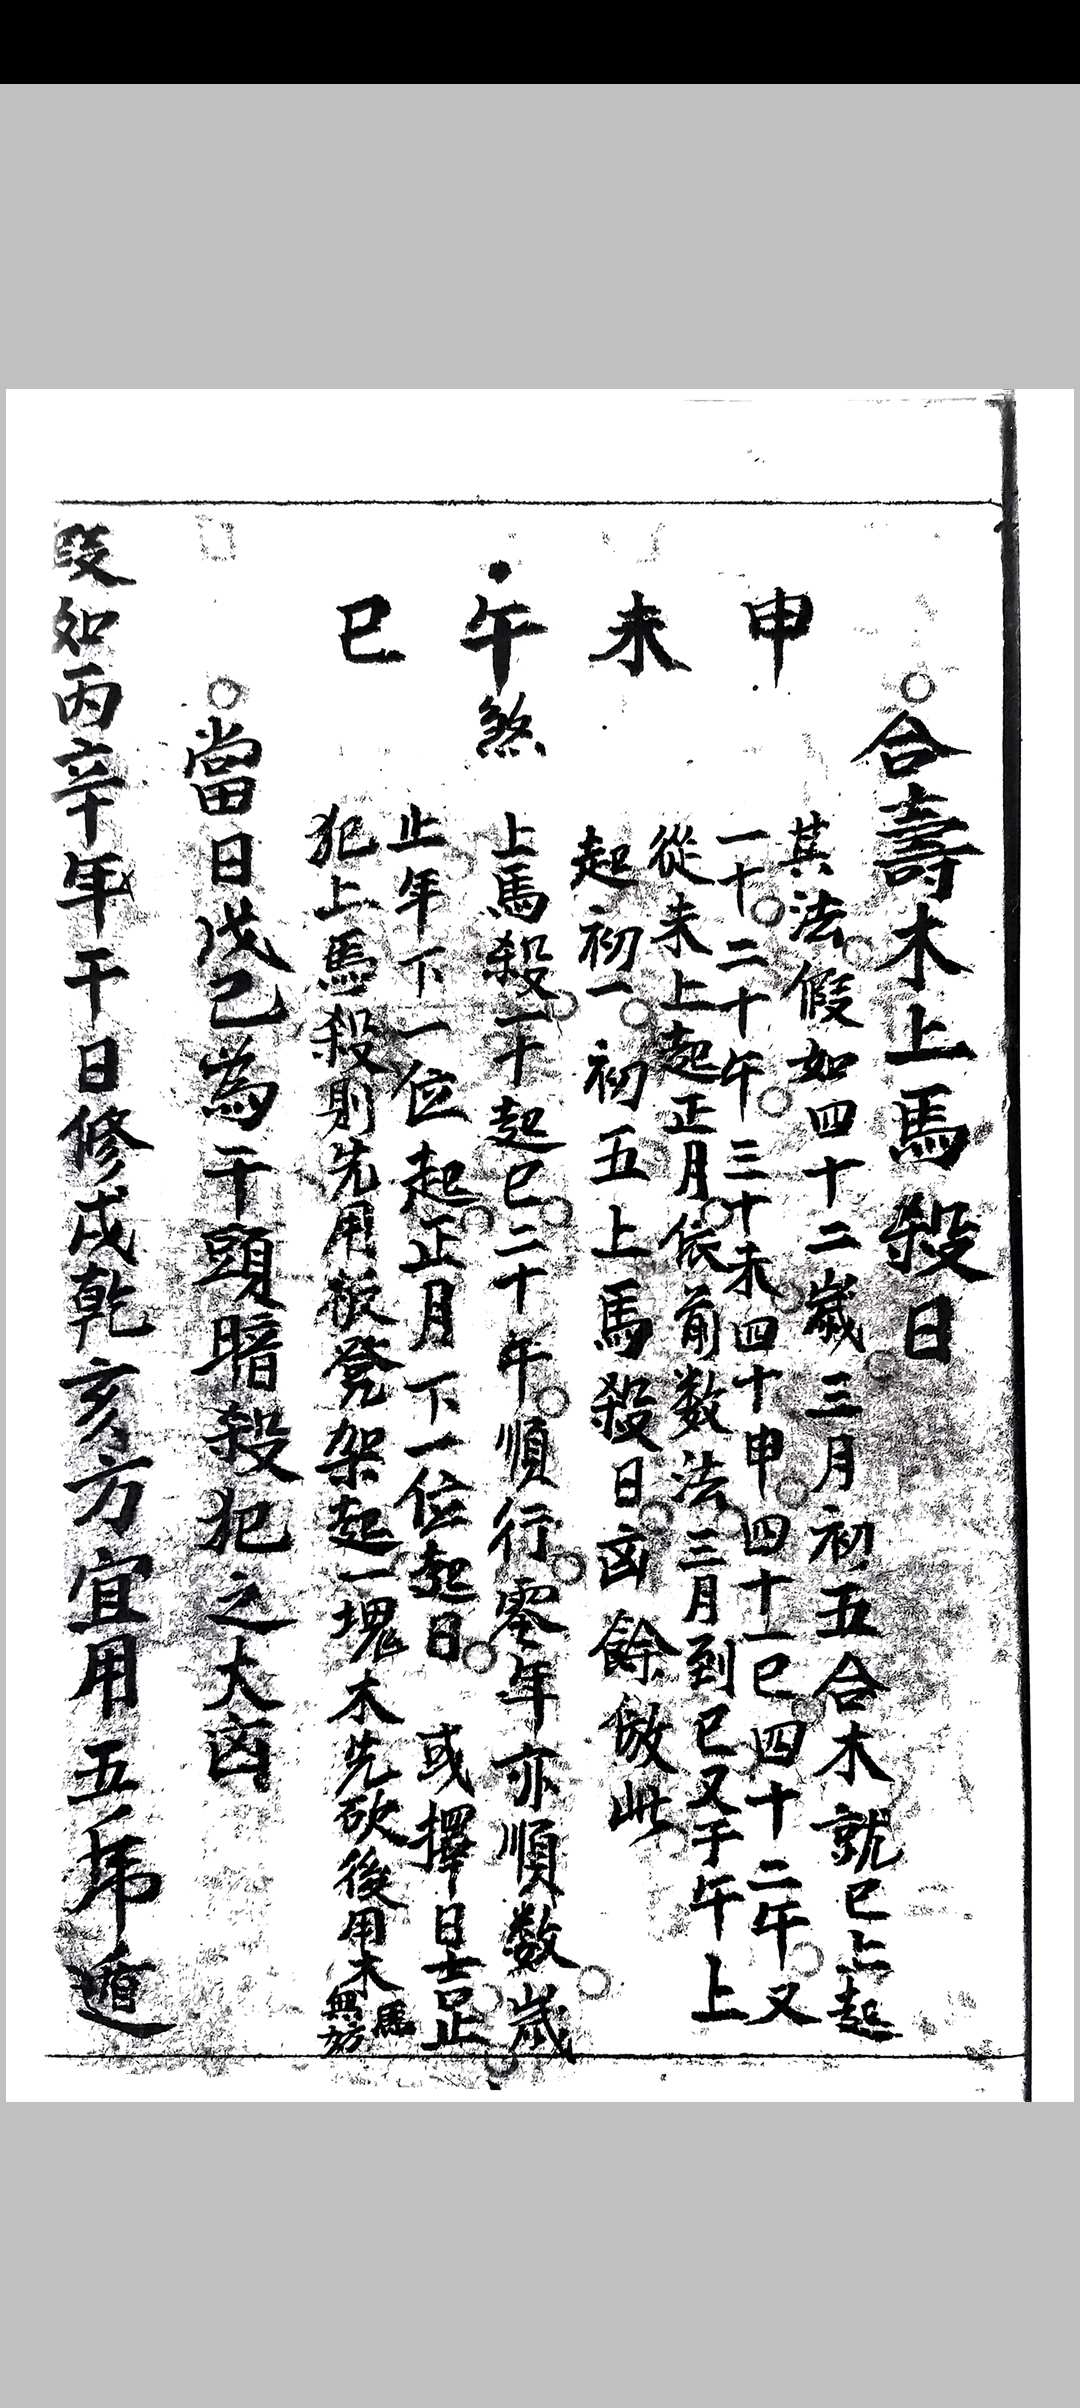 合壽木上馬殺日
申
未
午煞
巳
其法假如四十二嵗三月初五合木就巳上起
一十二十午三十未四十申四十一巳四十二午又
從未上起正月依前数法三月到巳又于午上
起初一初五上馬殺日凶餘倣此
上馬殺一十起巳二十午順行零年亦順数嵗
止年下一位起正月下一位起日或擇日士足止
犯上馬殺則先用板凳架起一塊木先砍後用木馬無妨
當日戊己為干頭暗殺犯之大凶
叚如丙辛年干日修戌乾亥方宜用五乕遁